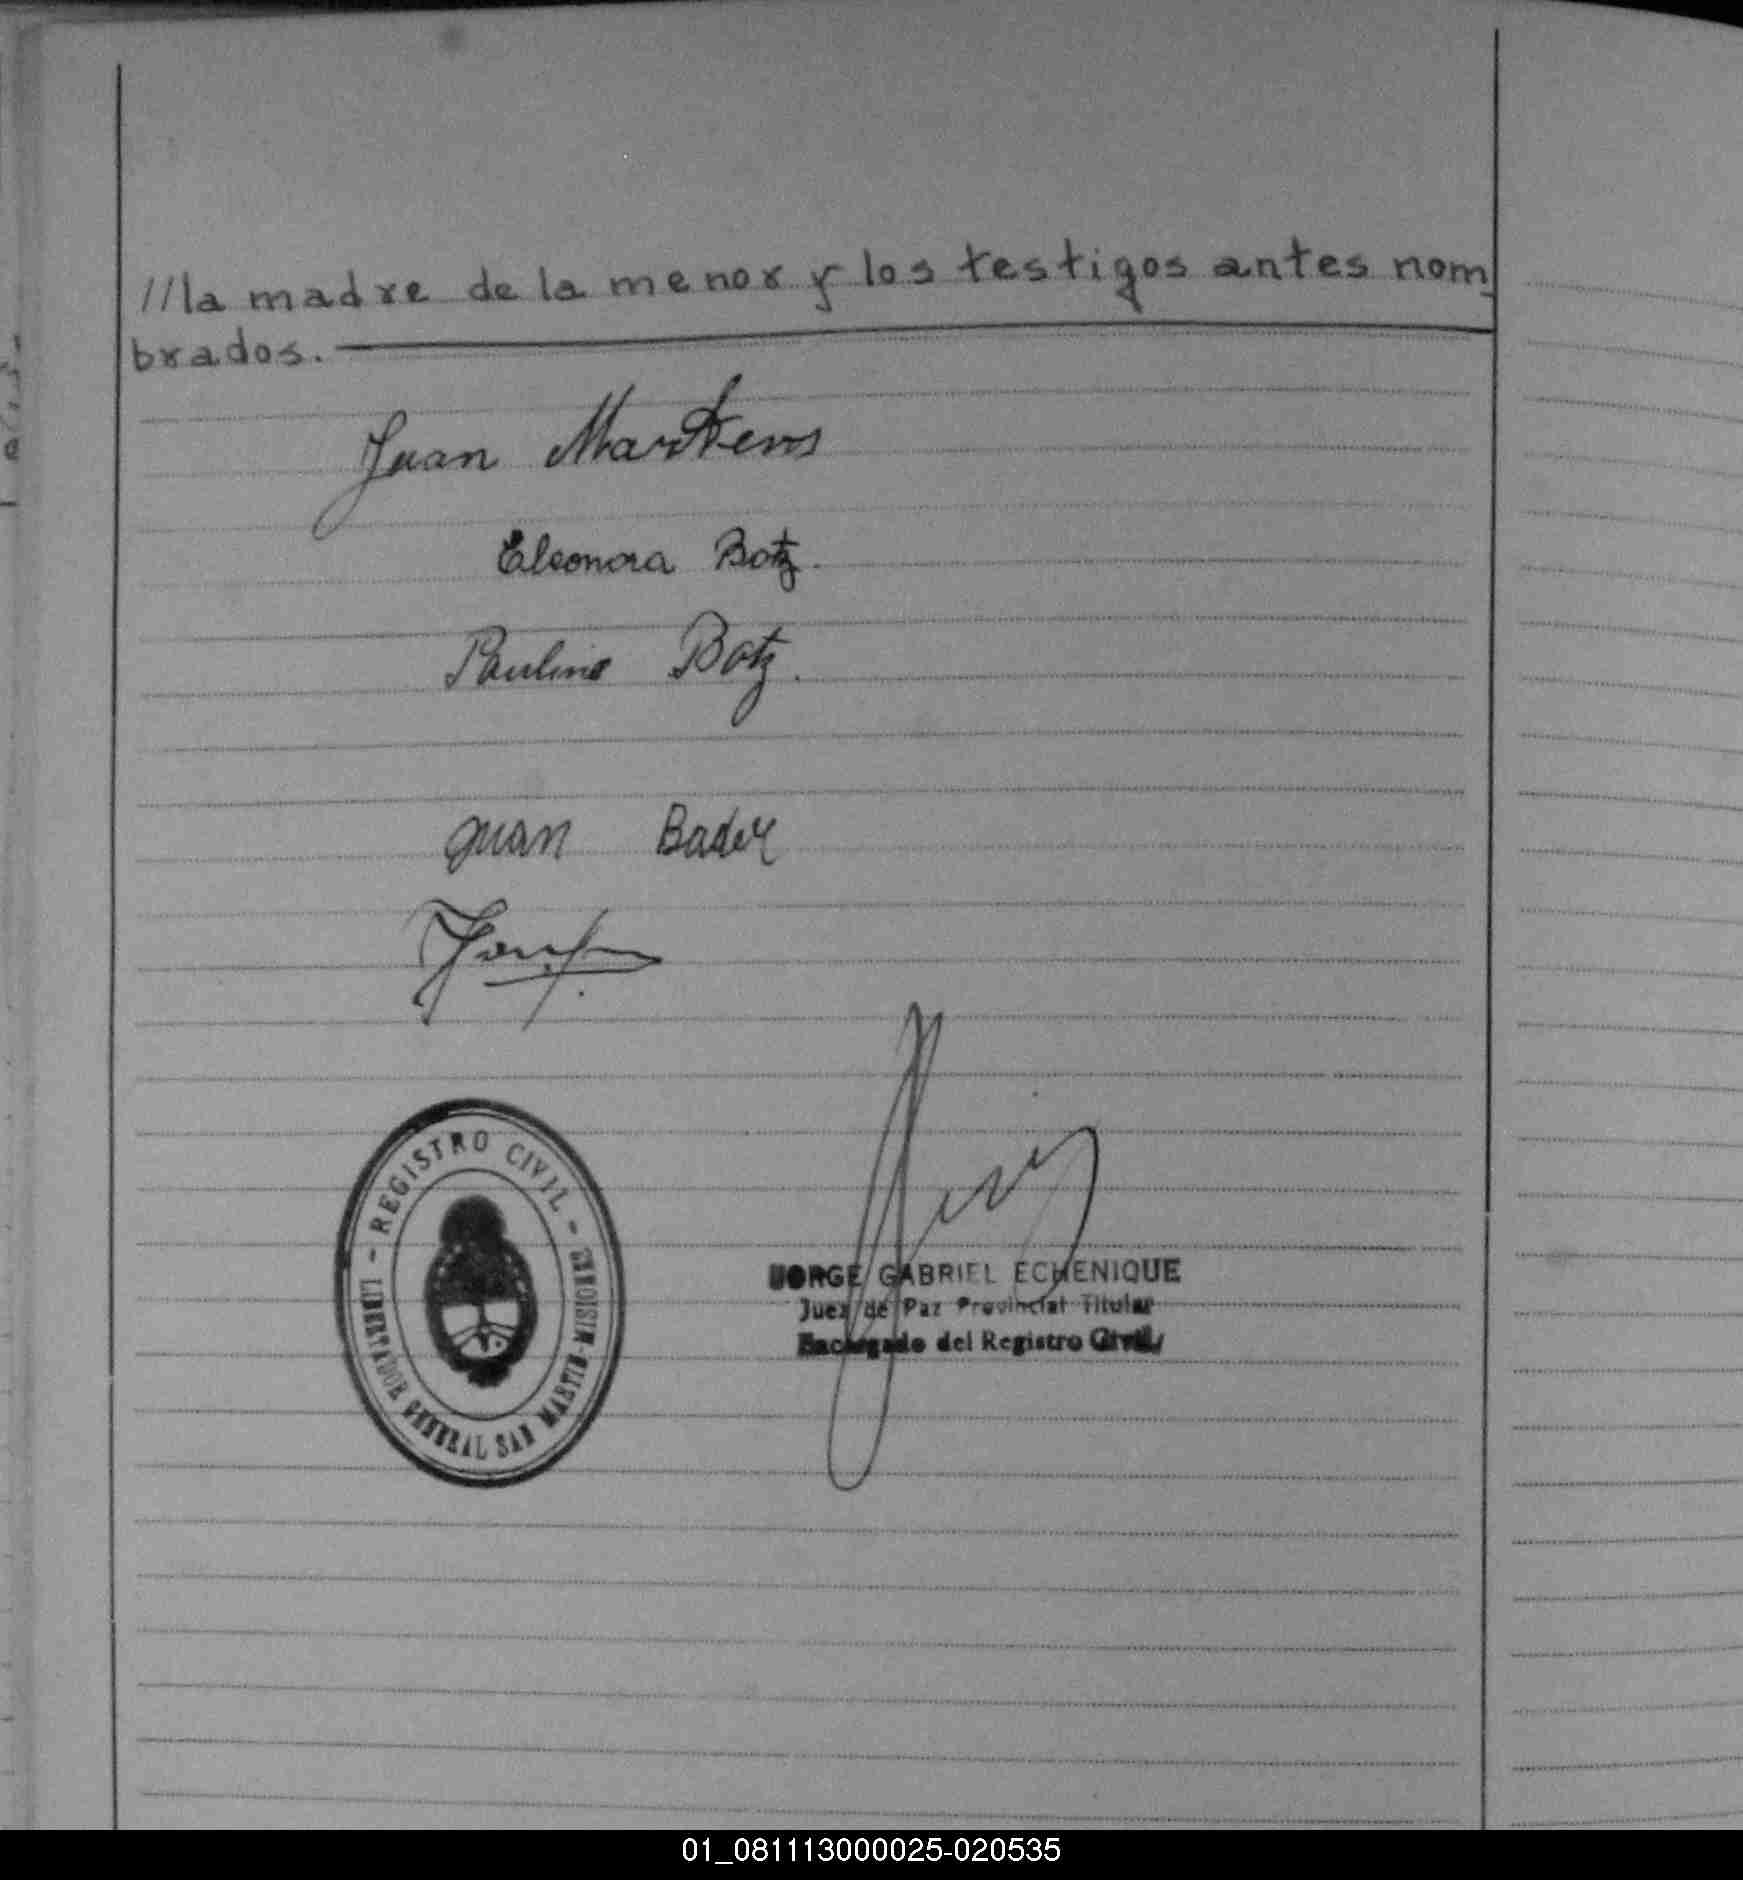 //la madre de la menor y los testigos antes nom
brados.
Juan Martens
Eleonora Botz.
Paulina Botz.
Juan Bader
- REGISTRO CIVIL -
LIBERTADOR GENERAL SAN MARTIN - MISIONES
JORGE GABRIEL ECHENIQUE
Juez de Paz Provincial Titular
Encargado del Registro Civil
01_081113000025-020535